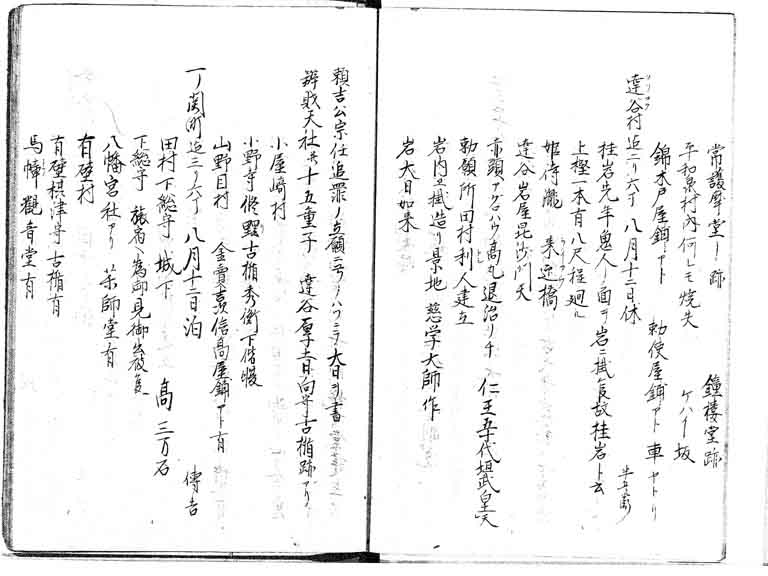 常護摩堂ノ跡　鐘楼堂跡
平和泉村内何レモ焼失　ケハイ坂
錦木戸屋鋪アト　勅使屋鋪アト　車ヤトリ
達谷村迄二リ六丁　八月十二日休
桂岩先年魚人ノ面ヲ岩ニ掛ケ候故桂岩ト云
上樫一本有八尺程廻ル
姫待瀧　来迎橋
達谷岩屋毘沙門天
赤頭アクロハウ高丸退治ノ千　仁王五代垣武皇天
勅願所田村利人建立
岩内エ掛造リ景地　慈学大師作
岩大日如来
頼吉公宗任追罪ノ立願ニ弓ノハツニテ大日ヲ書
辨財天社共十五童子　達谷厚土日向守古楯跡アリ
小屋崎村
小野寺修理古楯秀衡下借幔
山野目村　金賣吉信高屋鋪アト有
一ノ関町迄三リ六丁　八月十二日泊　傳吉
田村下総守城下　高三万石
下総守　旅宿ヘ為御見御出被良
八幡宮社アリ　薬師堂有
有壁村
有壁棋津守古楯有
馬幃觀音堂有